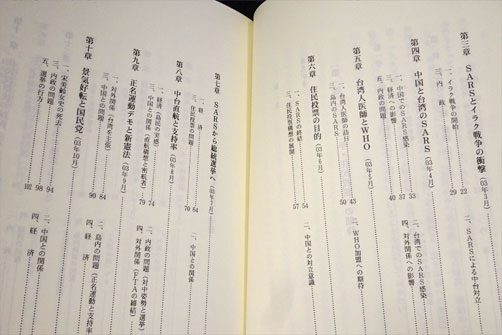 第三章　SARSとイラク戦争の衝撃（03年3月）
一、イラク戦争の開始……22　二、SARSによる中台対立
三、内　政……29
第四章　中国と台湾のSARS（03年4月）
一、中国でのSARS感染……33　二、台湾でのSARS感染
三、経済への影響……37　四、対外関係への影響
五、内政の問題……40
第五章　台湾人医師とWHO（03年5月）
一、台湾人医師の訪日……43　二、WHO加盟への期待
三、島内のSARS……50
第六章　住民投票の目的（03年6月）
一、SARSの終結……54　二、中国との対立意識
三、住民投票構想の展開……57
第七章　SARSから総統選挙へ（03年7月）
一、経　済……64　二、中国との関係
三、住民投票の問題……70
第八章　中台直航と支持率（03年8月）
一、経済（島民の実感）……74　二、内政の問題（対中姿勢と選挙）
三、中国との関係（直航構想と密航者）……79　四、対外関係（FTAの締結）
第九章　正名運動デモと新憲法（03年9月）
一、対外関係（台湾を主張）……84　二、島内の問題（正名運動と支持率）
三、中国との問題……90　四、経　済
第十章　景気好転と国民党（03年10月）
一、宋美齢女史の死去……94　二、中国との関係
三、内政の問題……98　四、経　済
五、選挙の行方……102